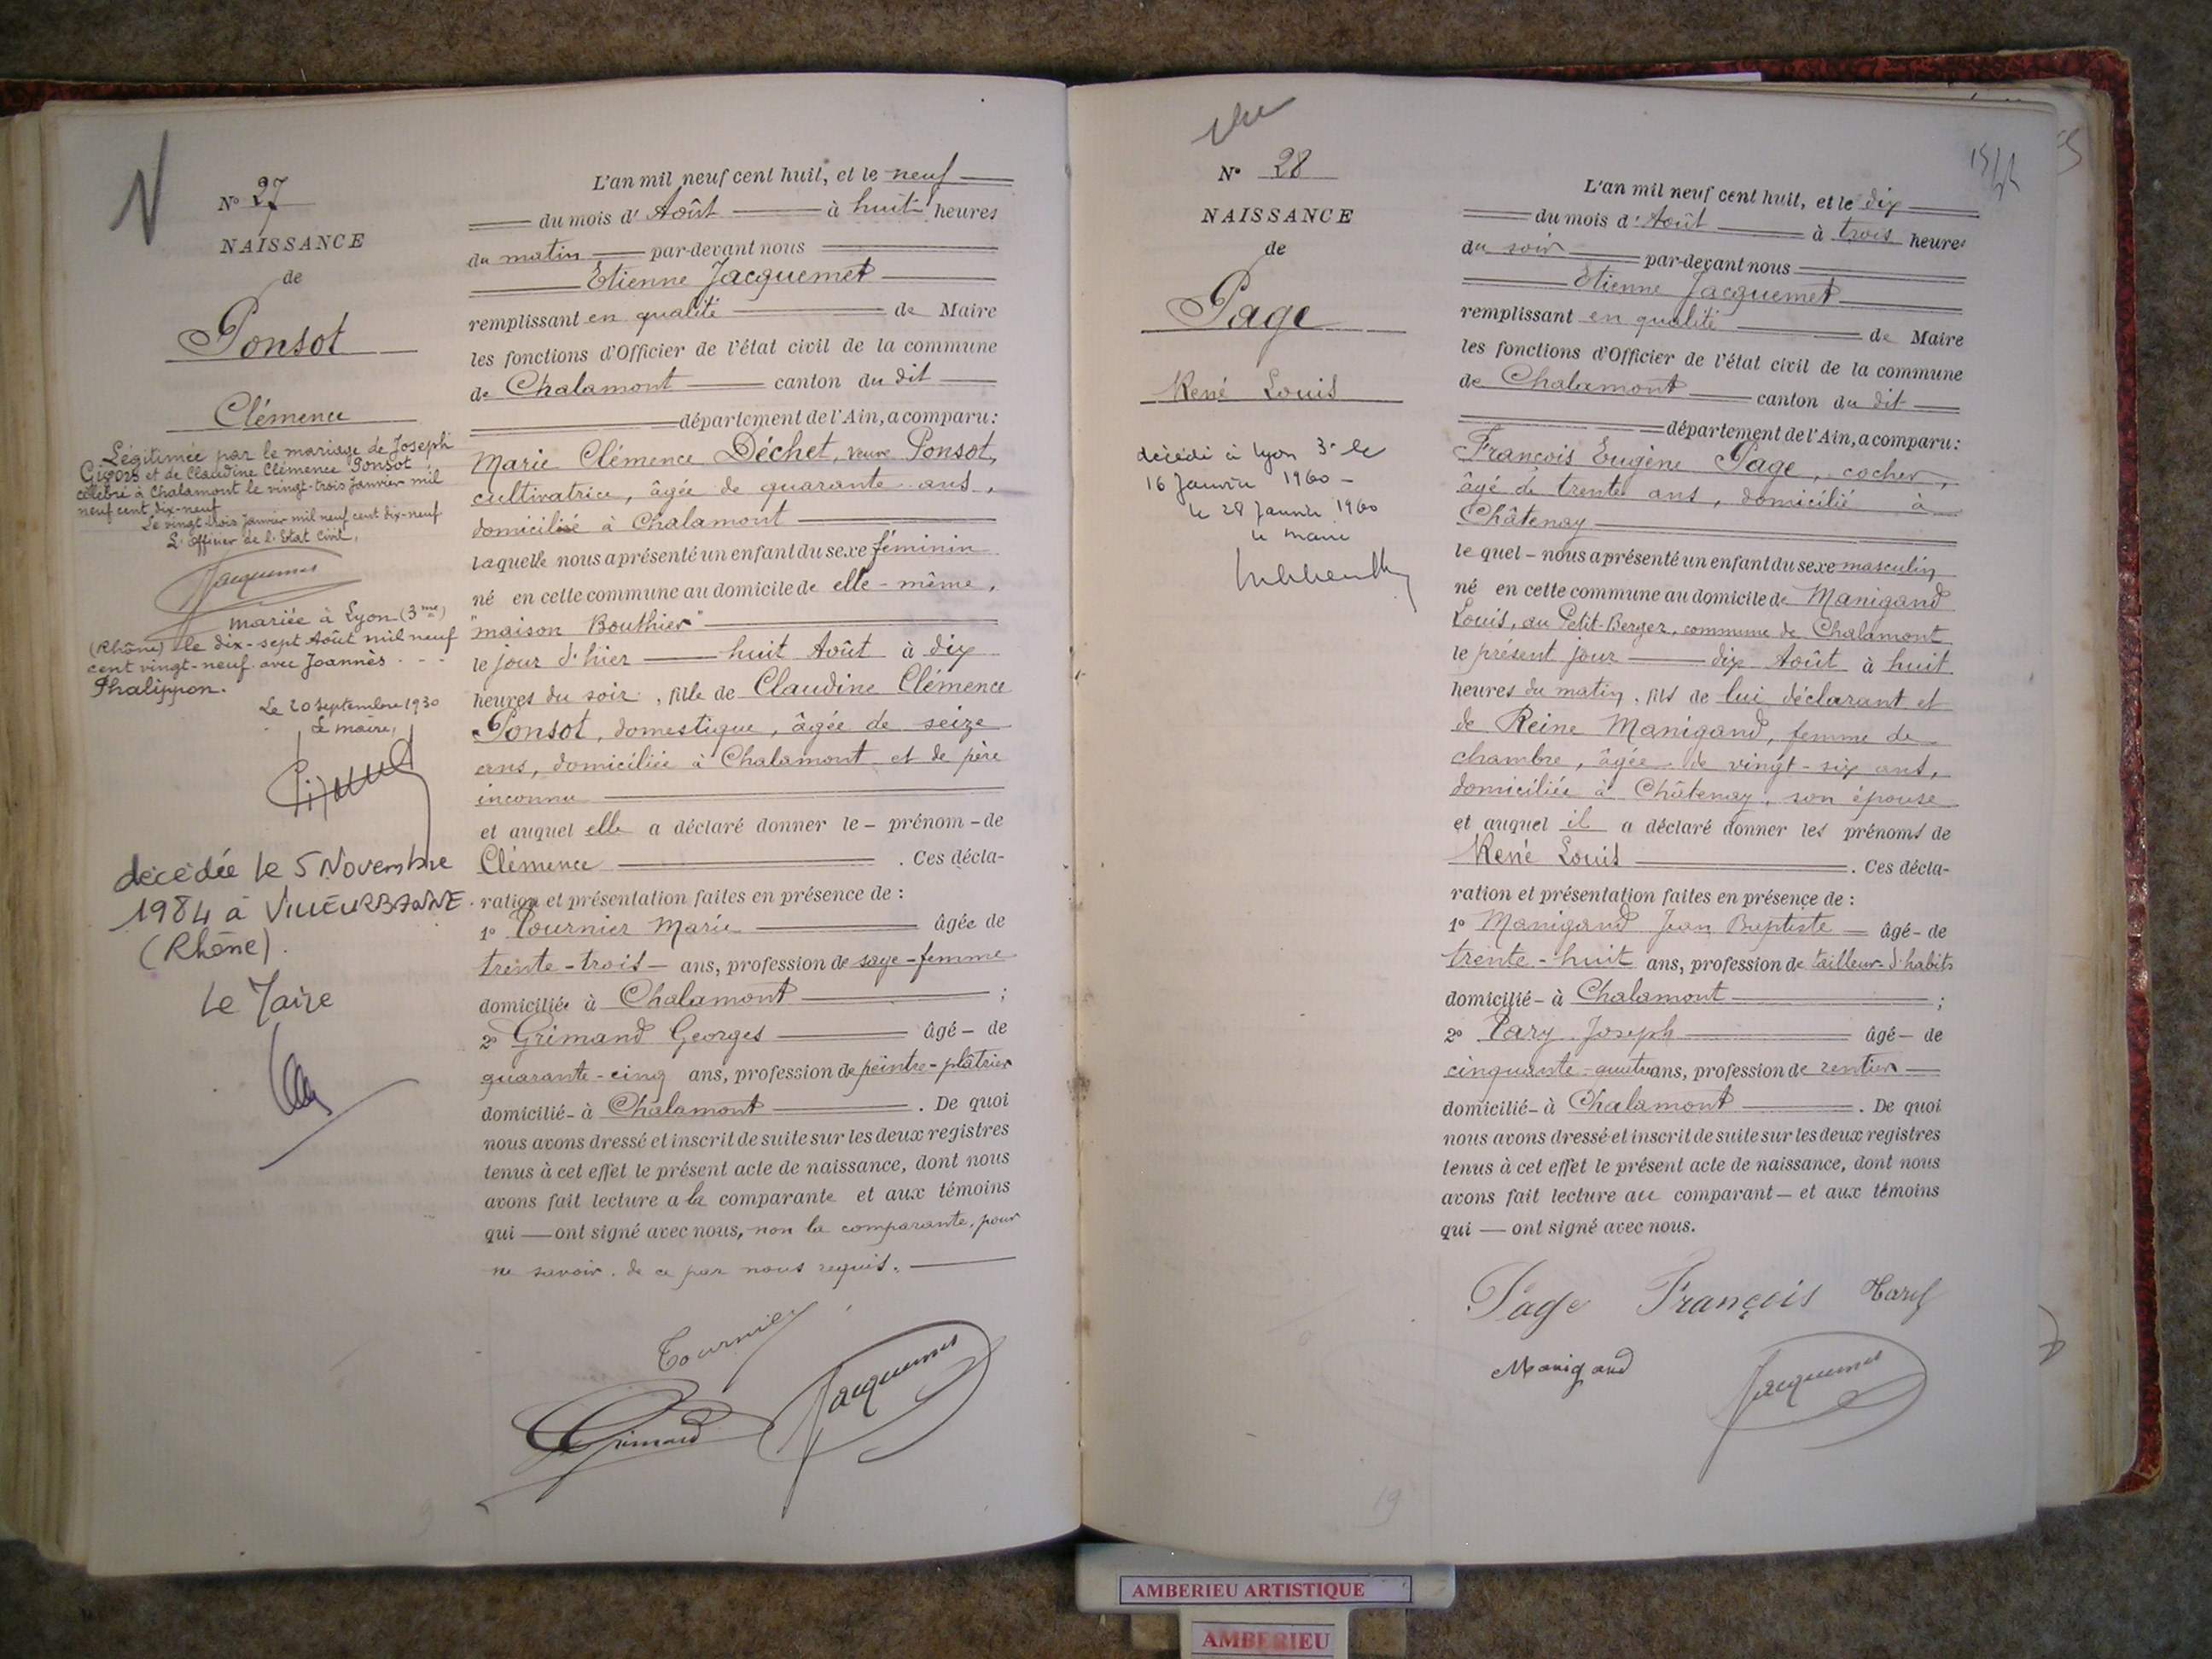 N
N° 27
NAISSANCE
de
Ponsot
Clémence
Légitimée par le mariage de Joseph
Gigors et de Claudine Clémence Ponsot
célébré à Chalamont le vingt-trois Janvier mil
neuf cent dix-neuf
Le vingt-trois Janvier mil neuf cent dix-neuf
L'officier de l'Etat Civil,
Jacquemet
mariée à Lyon (3me)
(Rhône) le dix-sept Août mil neuf
cent vingt-neuf avec Joannès
Phalippon.
Le 20 Septembre 1930
Le maire,
décédée le 5 Novembre
1984 à VILLEURBANNE
(Rhône).
Le Maire
L'an mil neuf cent huit, et le neuf
du mois d'Août à huit heures
du matin par-devant nous
Etienne Jacquemet
remplissant en qualité de Maire
les fonctions d'Officier de l'état civil de la commune
de Chalamont canton du dit
département de l'Ain, a comparu:
Marie Clémence Déchet, veuve Ponsot,
cultivatrice, âgée de quarante ans,
domiciliée à Chalamont
laquelle nous a présenté un enfant du sexe féminin
né en cette commune au domicile de elle-même,
"maison Bouthier"
le jour d'hier huit Août à dix
heures du soir, fille de Claudine Clémence
Ponsot, domestique, âgée de seize
ans, domiciliée à Chalamont et de père
inconnu
et auquel elle a déclaré donner le - prénom - de
Clémence . Ces décla-
ration et présentation faites en présence de :
1° Tournier Marie âgée de
trente-trois ans, profession de sage-femme
domiciliée à Chalamont ;
2° Grimand Georges âgé - de
quarante-cinq ans, profession de peintre-plâtrier
domicilié - à Chalamont . De quoi
nous avons dressé et inscrit de suite sur les deux registres
tenus à cet effet le présent acte de naissance, dont nous
avons fait lecture a la comparante et aux témoins
qui — ont signé avec nous, non la comparante, pour
ne savoir, de ce par nous requis.
Tournier
Grimand Jacquemet
N° 28
NAISSANCE
de
Page
René Louis
décédé à Lyon 3e le
16 Janvier 1960 -
le 28 Janvier 1960
le maire
L'an mil neuf cent huit, et le dix
du mois d'Août à trois heures
du soir par-devant nous
Etienne Jacquemet
remplissant en qualité de Maire
les fonctions d'Officier de l'état civil de la commune
de Chalamont canton du dit
département de l'Ain, a comparu:
François Eugène Page, cocher,
âgé de trente ans, domicilié à
Châtenay
lequel - nous a présenté un enfant du sexe masculin
né en cette commune au domicile de Manigand
Louis, au Petit-Berger, commune de Chalamont
le présent jour dix Août à huit
heures du matin, fils de lui déclarant et
de Reine Manigand, femme de
chambre, âgée de vingt-six ans,
domiciliée à Châtenay, son épouse
et auquel il a déclaré donner les prénoms de
René Louis . Ces décla-
ration et présentation faites en présence de :
1° Manigand Jean Baptiste âgé - de
trente-huit ans, profession de tailleur d'habits
domicilié - à Chalamont ;
2° Joseph âgé - de
cinquante-quatre ans, profession de rentier
domicilié - à Chalamont . De quoi
nous avons dressé et inscrit de suite sur les deux registres
tenus à cet effet le présent acte de naissance, dont nous
avons fait lecture au comparant — et aux témoins
qui — ont signé avec nous.
Page François
Manigand Jacquemet
AMBERIEU ARTISTIQUE
AMBERIEU